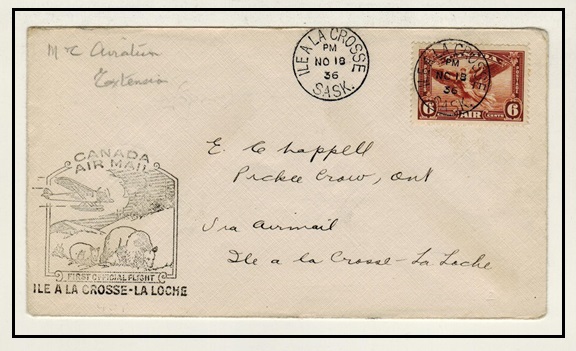 Mc Aviation
Extension
ILE A LA CROSSE
PM
NO 18
36
SASK.
ILE A LA CROSSE
PM
NO 18
36
SASK.
6 AIR CENTS 6
E. Chappell
Pickle Crow, Ont
Via Airmail
Ile a la Crosse - La Loche
CANADA
AIR MAIL
FIRST OFFICIAL FLIGHT
ILE A LA CROSSE-LA LOCHE